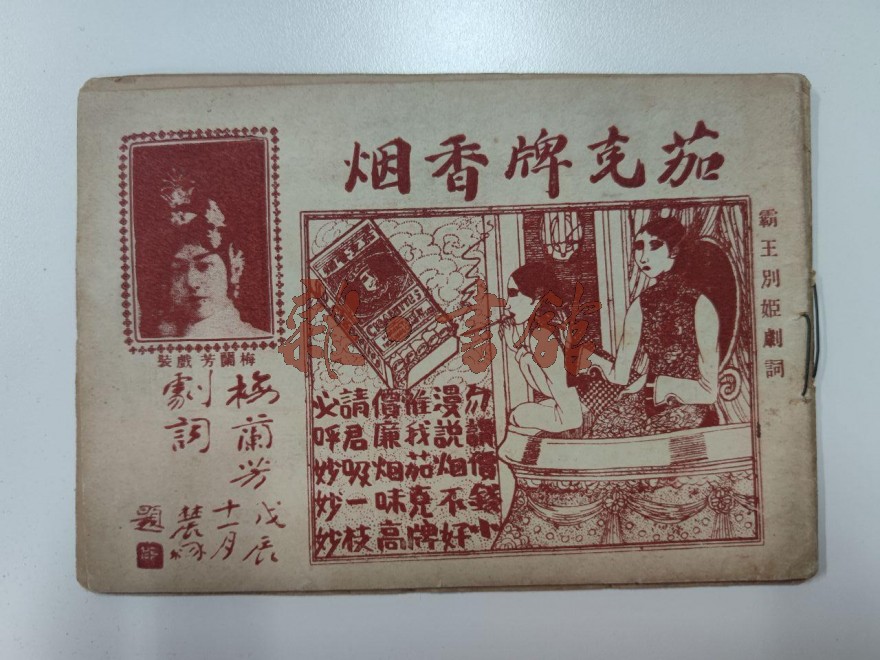 茄克牌香烟
霸王別姬劇詞
勿謂價錢小
漫說烟不好
惟我茄克牌
價廉烟味高
請君吸一枝
必呼妙妙妙
CIGARETTES
梅蘭芳戲裝
梅蘭芳
劇詞
戊辰
十一月
題